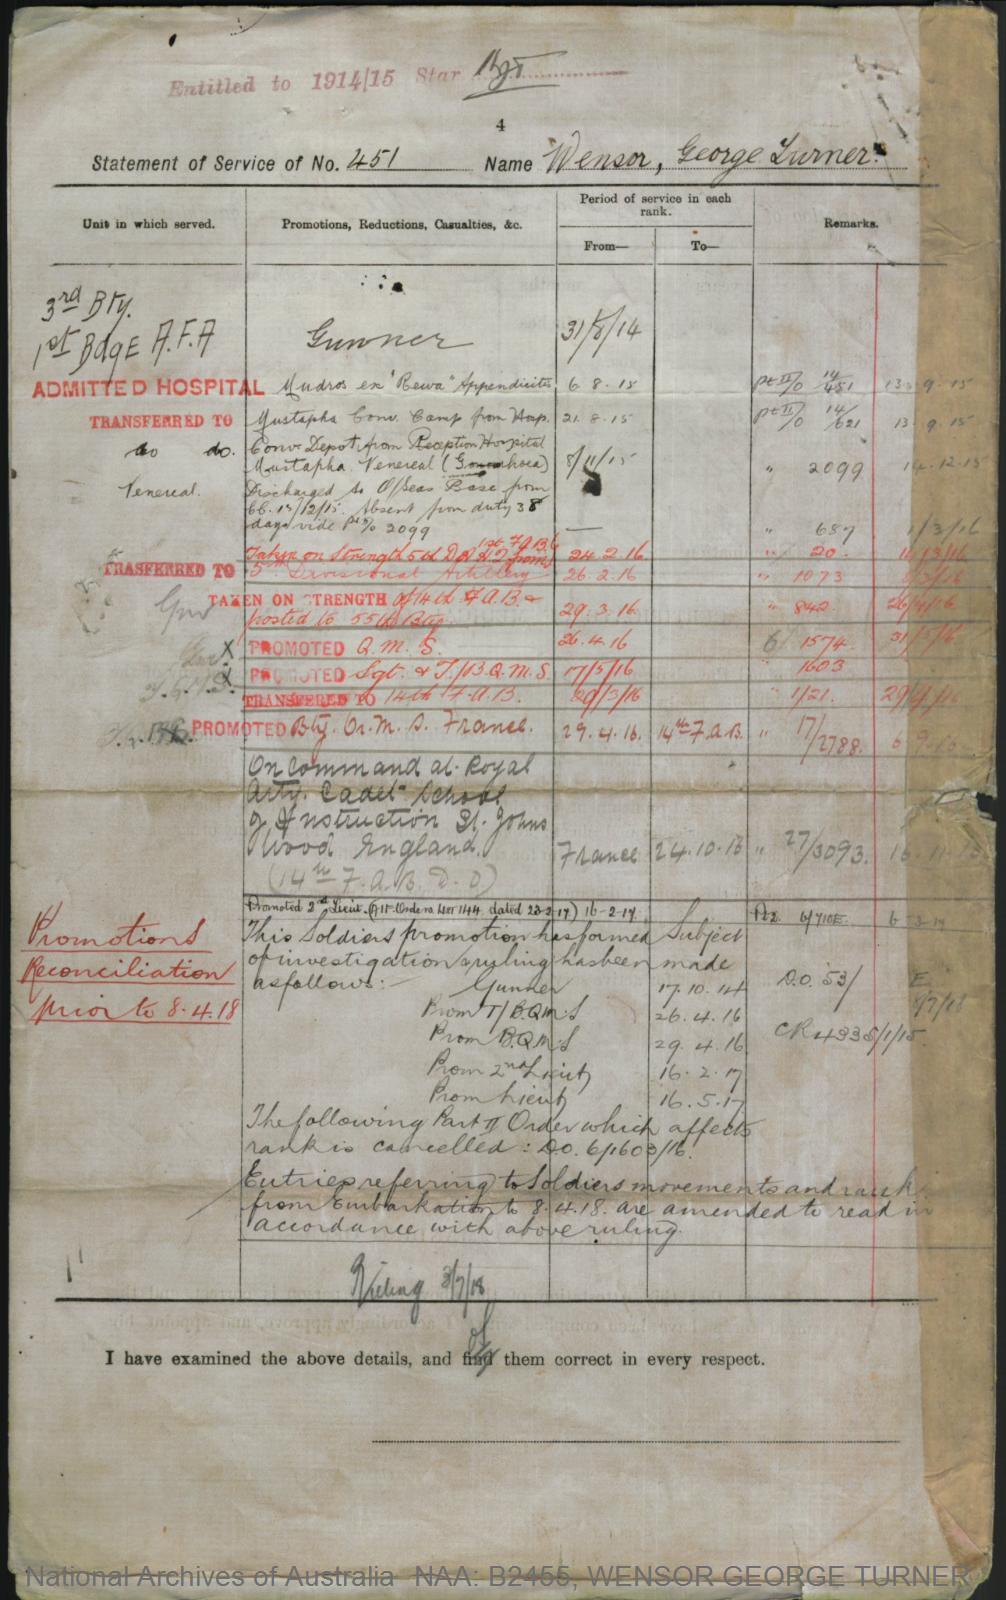 Entitled to 1914/15 Star
4
Statement of Service of No. 451 Name Wensor, George Turner.
Unit in which served. Promotions, Reductions, Casualties, &c. Period of service in each rank. From— To— Remarks.
3rd Bty.
1st Bdge A.F.A Gunner 31/8/14
ADMITTED HOSPITAL Mudros ex "Rewa" Appendicites 6.8.15 pt II/0 14/451 13.9.15
TRANSFERRED TO Mustapha Conv. Camp from Hosp. 21.8.15 pt II/0 14/621 13.9.15
do do. Conv. Depot from Reception Hospital
Mustapha Venereal (Gonorrhoea) 8/11/15 " 2099 14.12.15
Venereal. Discharged to O/Seas Base from
13/12/15. Absent from duty 38
days vide Pt II/0 2099 — " 687 1/3/16
Taken on Strength 5th D.A. 1st F.A.B. 24.2.16 " 20.
TRASFERRED TO 5th Divisional Artillery 26.2.16 " 1073
TAKEN ON STRENGTH of 14th F.A.B. &
posted to 55th Bty. 29.3.16 " 842 26/4/16
PROMOTED Q.M.S. 26.4.16 6/ 1574 31/5/16
PROMOTED Sgt. & T/B.Q.M.S 17/5/16 " 1603
TRANSFERRED TO 14th F.A.B. 29/3/16 " 1/21.
PROMOTED Bty. Qr. M. S. France. 29.4.16 14th F.A.B. " 17/2788.
On command at Royal
Arty. Cadet School
of Instruction St. Johns
Wood England. France 24.10.16 " 27/3093.
(14th F.A.B. D.O)
Promoted 2nd Lieut. (AIF Order No 1144 dated 23-2-17) 16-2-17 Pt 2 6/710E
Promotions
Reconciliation
prior to 8.4.18
This Soldiers promotion has formed Subject
of investigation & ruling has been made
as follows:— Gunner 17.10.14 D.O. 53/
Prom T/B.Q.M.S 26.4.16
Prom B.Q.M.S 29.4.16
Prom 2nd Lieut 16.2.17
Prom Lieut 16.5.17
The following Part II Order which affects
rank is cancelled: D.O. 6/1603/16.
Entries referring to Soldiers movements and rank
from Embarkation to 8.4.18. are amended to read in
accordance with above ruling.
3/7/18
I have examined the above details, and find them correct in every respect.
National Archives of Australia NAA: B2455, WENSOR GEORGE TURNER